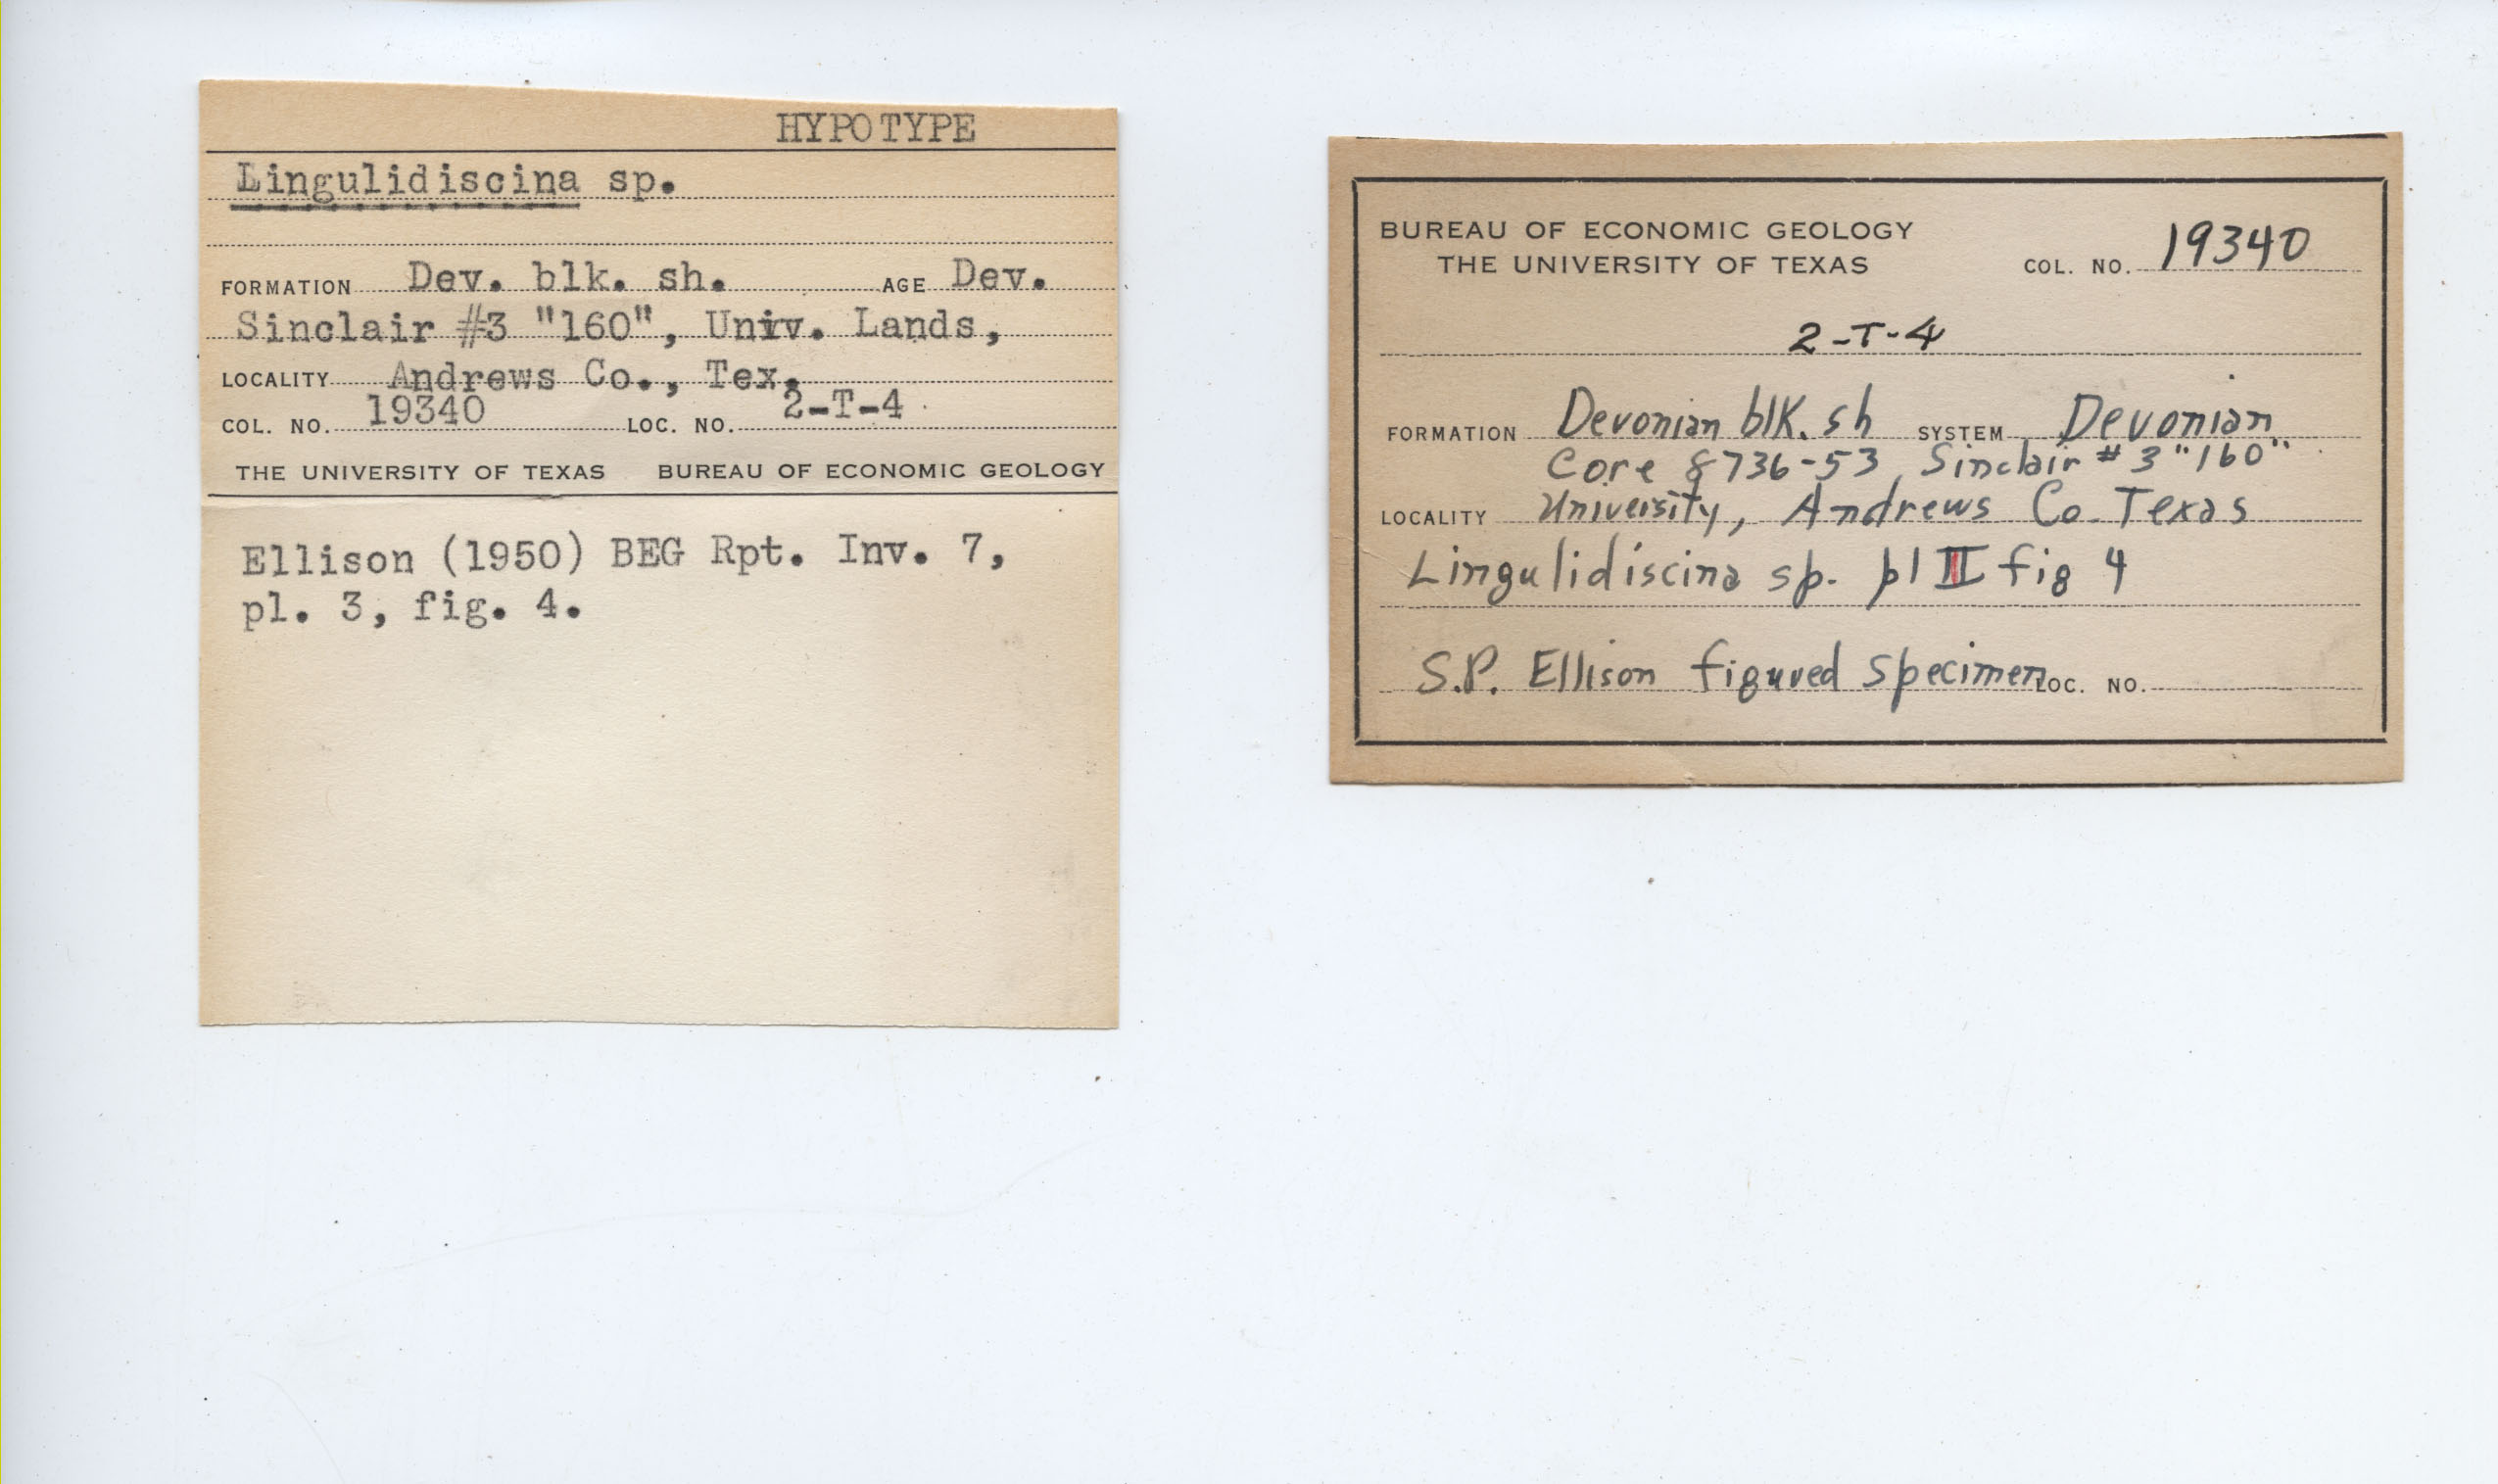 HYPOTYPE
Lingulidiscina sp.
FORMATION Dev. blk. sh. AGE Dev.
Sinclair #3 "160", Univ. Lands,
LOCALITY Andrews Co., Tex.
COL. NO. 19340 LOC. NO. 2-T-4
THE UNIVERSITY OF TEXAS BUREAU OF ECONOMIC GEOLOGY
Ellison (1950) BEG Rpt. Inv. 7,
pl. 3, fig. 4.
BUREAU OF ECONOMIC GEOLOGY
THE UNIVERSITY OF TEXAS COL. NO. 19340
2-T-4
FORMATION Devonian blk. sh SYSTEM Devonian
Core 8736-53 Sinclair #3 "160"
LOCALITY University, Andrews Co. Texas
Lingulidiscina sp. pl III fig 4
S.P. Ellison figured specimen LOC. NO.